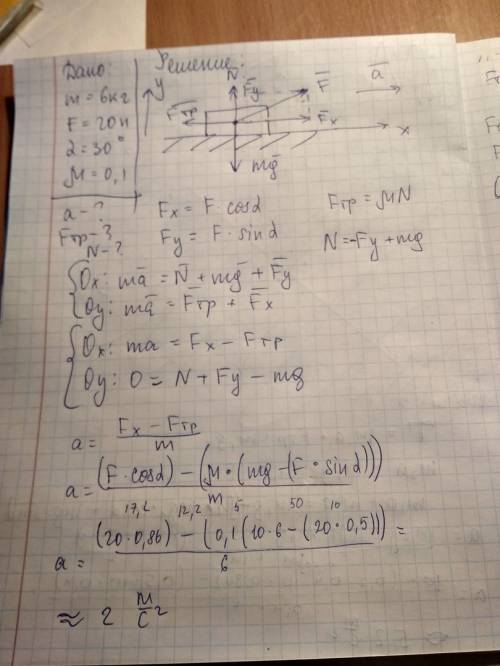 Дано:
m = 6кг
F = 20н
α = 30°
μ = 0,1
a - ?
Fтр - ?
N - ?
Решение:
y
N
Fy
F
a
Fтр
Fx
x
mg
Fx = F · cosα
Fтр = μN
Fy = F · sinα
N = -Fy + mg
Ox: ma = N + mg + Fy
Oy: ma = Fтр + Fx
Ox: ma = Fx - Fтр
Oy: 0 = N + Fy - mg
a = (Fx - Fтр) / m
a = ((F · cosα) - (μ · (mg - (F · sinα)))) / m
17,2 12,2 5 50 10
a = ((20 · 0,86) - (0,1 (10 · 6 - (20 · 0,5))) / 6 =
≈ 2 м/с²